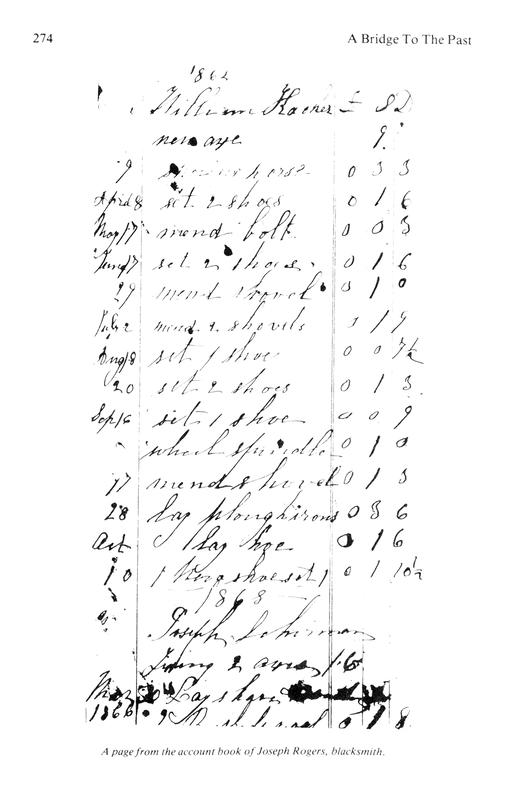 274
A Bridge To The Past
1862
William £ S D
new axe 9
9 horse 0 3 3
April 8 set 2 shoes 0 1 6
May 17 mend bolt 0 0 3
June 17 set 2 shoes 0 1 6
29 mend shovel 0 1 0
July 2 mend 2 shovels 1 9
Aug 18 set 1 shoe 0 0 7½
20 set 2 shoes 0 1 3
Sep 16 set 1 shoe 0 0 9
wheel spindle 0 1 0
17 mend shovel 0 1 3
28 lay plough irons 0 3 6
Oct 1 lay hoe 0 1 6
10 1 shoe set 1 0 1 10½
1863
Joseph
2 axes 1.6
Lay
1866 9 0 1 8
A page from the account book of Joseph Rogers, blacksmith.